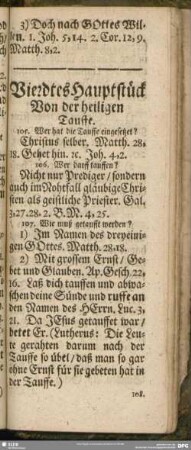 3) Doch nach GOttes Wil-
len. 1. Joh. 5,14. 2. Cor. 12,9.
Matth. 8,2.
Vierdtes Hauptstück
Von der heiligen
Tauffe.
105. Wer hat die Tauffe eingesetzet?
Christus selber. Matth. 28,
18. Gehet hin. ꝛc. Joh. 4,2.
106. Wer darff tauffen?
Nicht nur Prediger / sondern
auch im Nohtfall gläubige Chri-
sten als geistliche Priester. Gal.
3,27.28. 2. B. M. 4,25.
107. Wie muß getaufft werden?
1) Im Namen des dreyeini-
gen GOttes. Matth. 28,18.
2) Mit grossem Ernst / Ge-
bet und Glauben. Ap. Gesch. 22,
16. Laß dich tauffen und abwa-
schen deine Sünde und ruffe an
den Namen des HErrn, Luc. 3,
21. Da JEsus getauffet war /
betet Er. (Lutherus: Die Leu-
te gerahten darum nach der
Tauffe so übel / daß man so gar
ohne Ernst für sie gebeten hat in
der Tauffe.)
108.